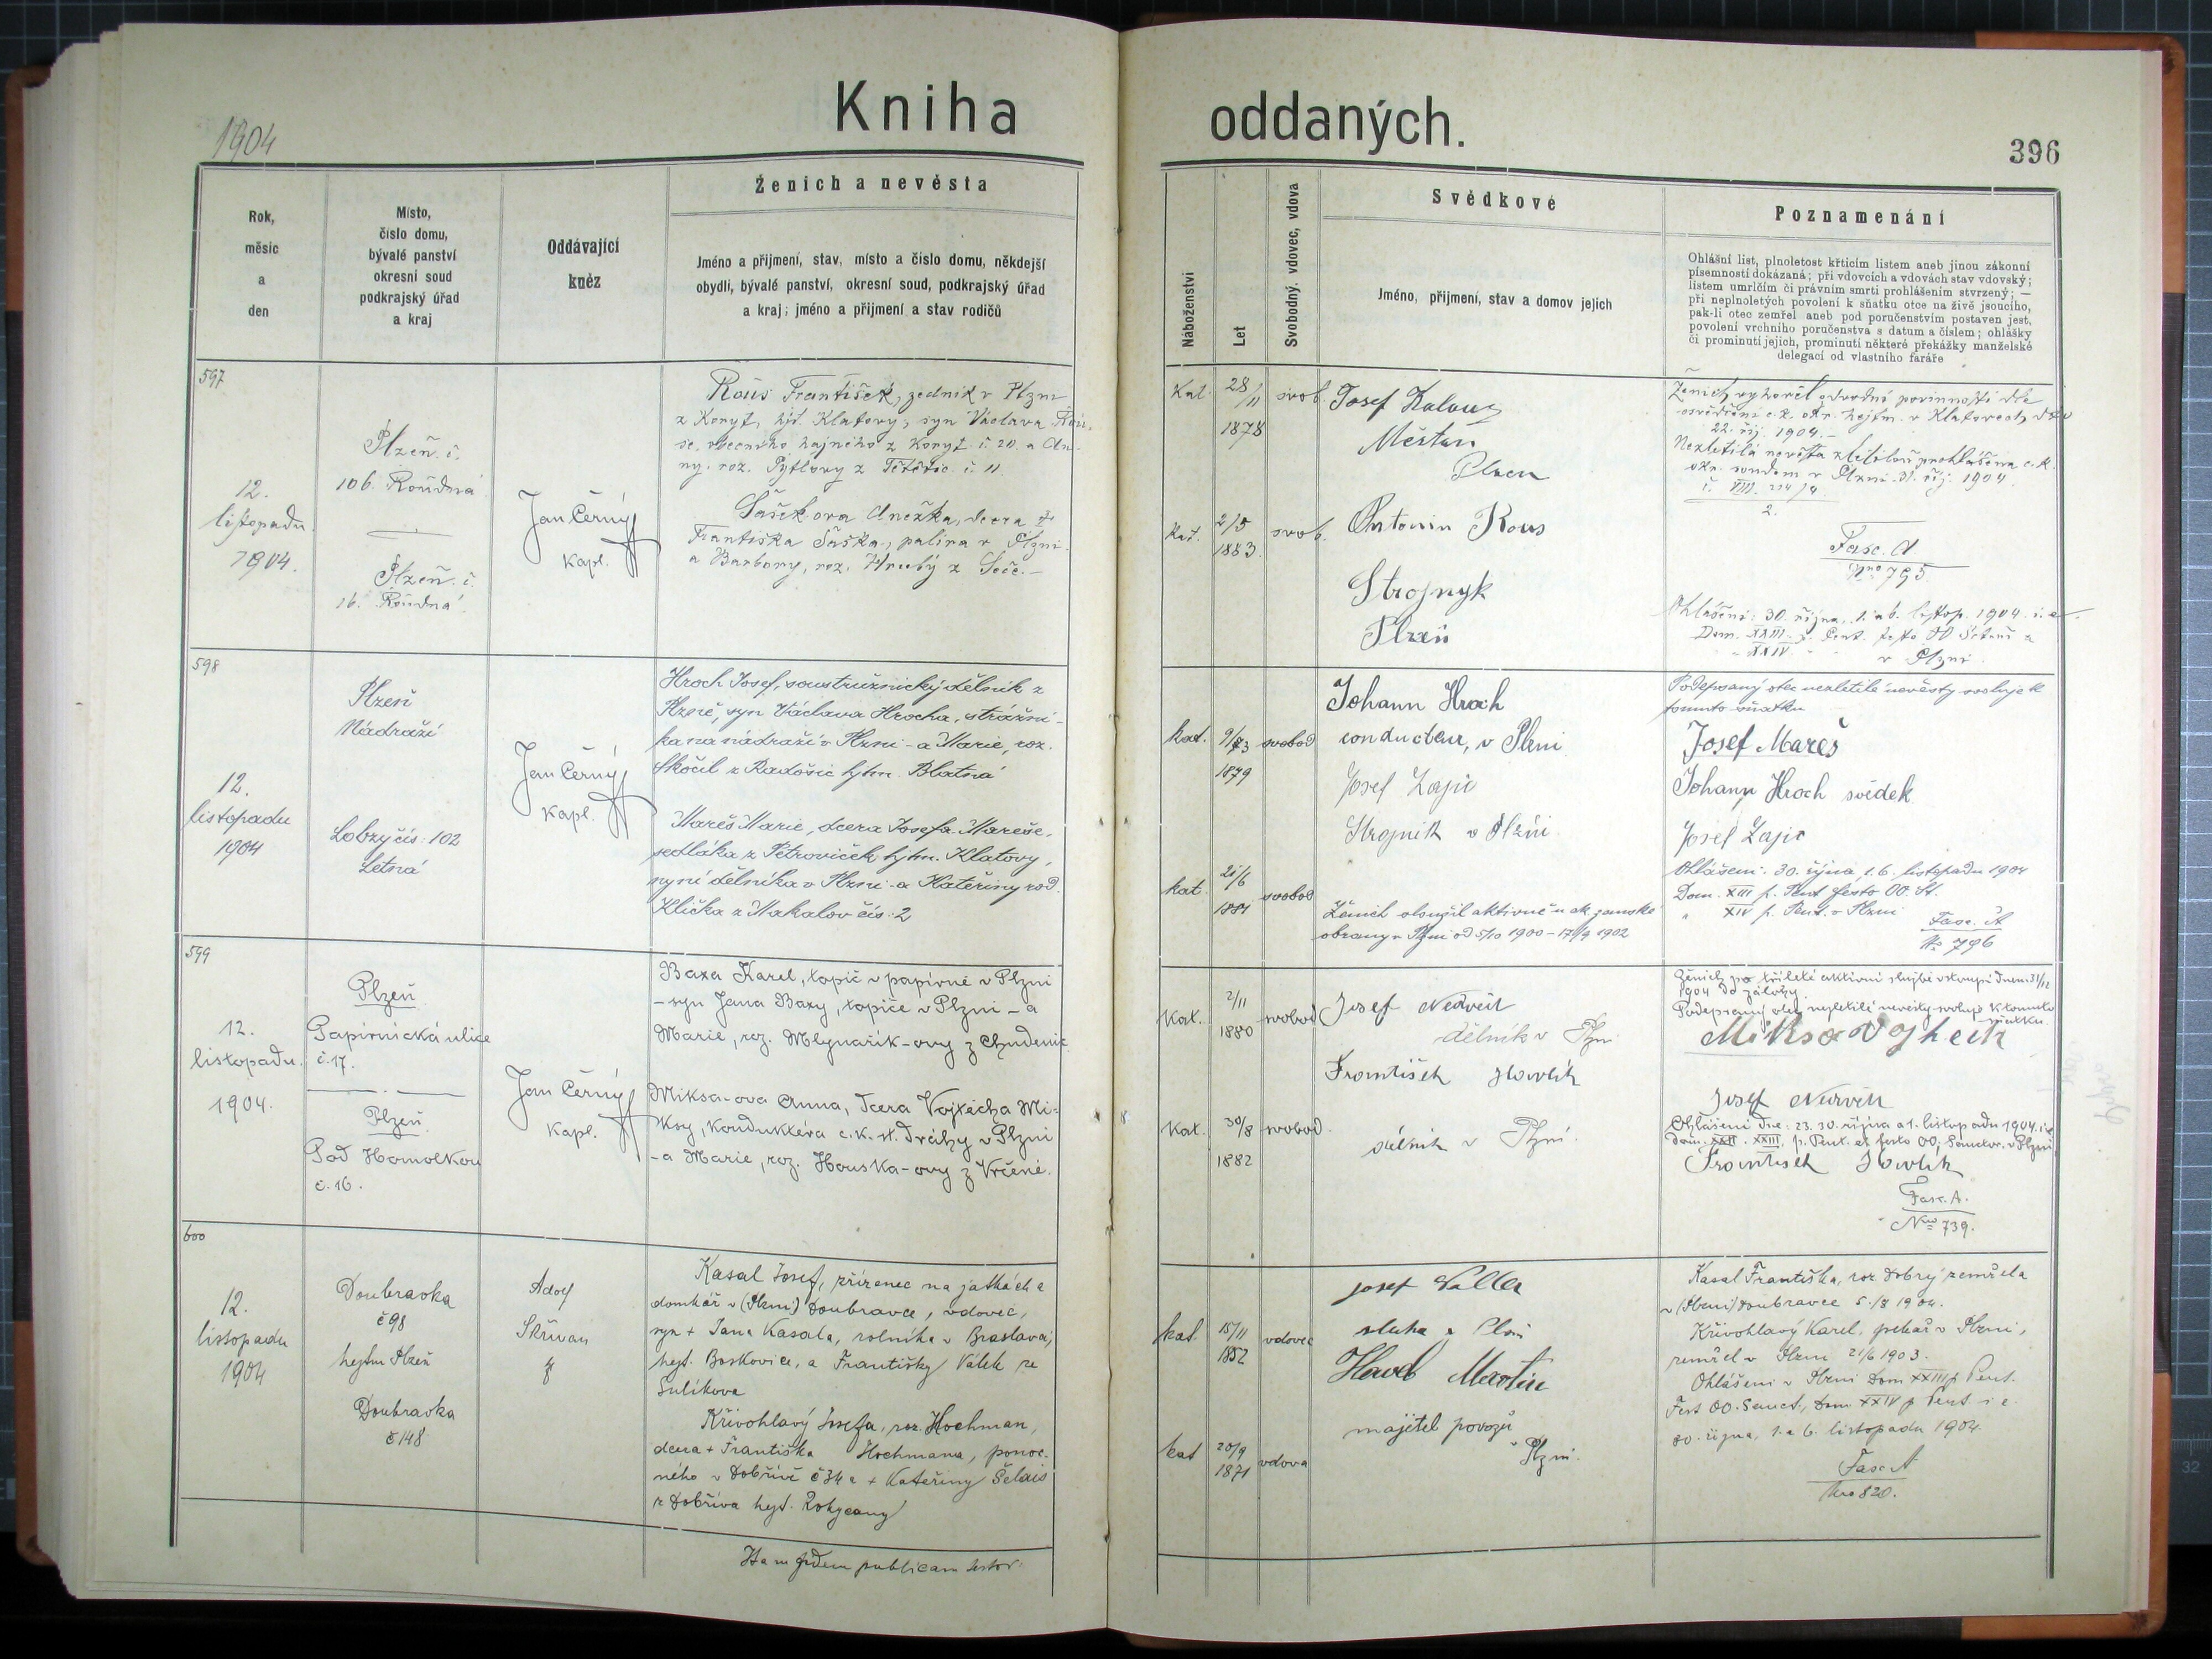 Kniha oddaných.
1904
396
Rok,
měsíc
a
den
Místo,
číslo domu,
bývalé panství
okresní soud
podkrajský úřad
a kraj
Oddávající
kněz
Ženich a nevěsta
Jméno a přijmení, stav, místo a číslo domu, někdejší
obydlí, bývalé panství, okresní soud, podkrajský úřad
a kraj; jméno a přijmení a stav rodičů
Náboženství
Let
Svobodný, vdovec, vdova
Svědkové
Jméno, přijmení, stav a domov jejich
Poznamenání
Ohlášní list, plnoletost křticím listem aneb jinou zákonní
písemností dokázaná; při vdovcích a vdovách stav vdovský;
listem umrlčím či právním smrti prohlášením stvrzený; —
při neplnoletých povolení k sňatku otce na živě jsoucího,
pak-li otec zemřel aneb pod poručenstvím postaven jest,
povolení vrchního poručenstva s datum a číslem; ohlášky
či prominutí jejich, prominutí některé překážky manželské
delegací od vlastního faráře
597
12.
listopadu
1904.
Plzeň č.
106. Roudná
Plzeň č.
16. Roudná
Jan Černý
kapl.
František, zedník v Plzni
z Koryt, hjt. Klatovy, syn Václava
obecního hajného z Koryt č. 20. a An-
ny, roz. Pytlovy z Tětětic č. 11.
Šašek-ova Anežka, dcera †
Františka Šaška, palíra v Plzni
a Barbory, roz. Hrubý z
Kat. 28/11 1878 svob.
Kat. 2/5 1883. svob.
Josef Kalous
Měšťan
Plzen
Antonin Rous
Strojnyk
Plzeň
Ženich vyhověl odvodní povinnosti dle
osvědčení c.k. okr. hejtm. v Klatovech, dto
22. říj. 1904.
Nezletilá nevěsta zletilou prohlášena c.k.
okr. soudem v Plzni 31. říj. 1904
Fasc. A
Nro 795.
Ohlášeni: 30. října, 1. a 6. listop. 1904. i. e.
v Plzni
598
12.
listopadu
1904
Plzeň
Nádraží
Lobzy čís: 102
Letná
Jan Černý
kapl.
Hroch Josef, soustružnický dělník z
Plzně, syn Václava Hrocha, strážní-
ka na nádraží v Plzni - a Marie, roz.
Skočil z Radošic hjtm. Blatná
Mareš Marie, dcera Josefa Mareše,
sedláka z Petroviček hjtm. Klatovy,
nyní dělníka v Plzni - a Kateřiny rod.
Klička z Makalov čís: 2
kat. 1879 svobod
kat. 21/6 1884 svobod
Johann Hroch
conducteur, v Plzni
Josef Zajíc
Strojník v Plzni.
Ženich sloužil aktivně u ck. zemské
obrany v Plzni od 5/10 1900 - 17/9 1902
Podepsaný otec nezletilé nevěsty svoluje k
tomuto sňatku
Josef Mareš
Johann Hroch svědek
Josef Zajic
Ohlášeni: 30. října, 1. 6. listopadu 1904
Dom. XIII p. Pent. festo OO. St.
" XIV p. Pent. v Plzni
Fasc. A
No 796
599
12.
listopadu.
1904.
Plzeň
Papírnická ulice
č. 17.
Plzeň.
Pod Homolkou
č. 16.
Jan Černý
kapl.
Baxa Karel, topič v papírně v Plzni
- syn Jana Baxy, topiče v Plzni - a
Marie, roz. Mlynařík-ovy z Chudenic
Miksa-ova Anna, dcera Vojtěcha Mi-
ksy, konduktéra c.k. st. dráhy v Plzni
- a Marie, roz. Houska-ovy z Vrčeně.
Kat. 2/11 1880 svobod
Kat. 30/8 1882 svobod.
Josef Nedvěd
dělník v Plzni
František Havlík
dělník v Plzni.
Ženich po tříleté aktivní službě vstoupí dnem 31/12
1904 do zálohy.
Podepsaný otec nezletilé nevěsty svoluje k tomuto
sňatku.
Miksa Vojheck
Josef
Ohlášeni dne: 23. 30. října a 1. listopadu 1904. i.e.
Dom. XXII. XXIII. p. Pent. et festo OO. Sanctor. v Plzni
František Havlík
Fasc. A.
Nro 739.
600
12.
listopadu
1904
Doubravka
č 98
hejtm Plzeň
Doubravka
č 148
Adolf
Skřivan
Kasal Josef, zřízenec na jatkách a
domkář v (Plzni) Doubravce, vdovec,
syn † Jana Kasala, rolníka v Braslavci,
hejt. Boskovice, a Františky Válek ze
Sulíkova
Křivohlavý Josefa, roz. Hochman,
dcera † Františka Hochmana, ponoc-
ného v Dobřívě č 34 a † Kateřiny Šelais
z Dobříva hejt. Rokycany
kat 15/11 1852 vdovec
kat 20/9 1871 vdova
Josef
sluha v
Havel Martin
majitel povozů
v Plzni.
Kasal Františka, roz Dobrý zemřela
v (Plzni) Doubravce 5./8 1904.
Křivohlavý Karel, pekař v Plzni,
zemřel v Plzni 21/6 1903.
Ohlášeni v Plzni Dom XXIII p Pent.
Fest OO. Sanct., Dom XXIV p Pent. i e.
30. října, 1. a 6. listopadu 1904.
Fasc A
Nro 820.